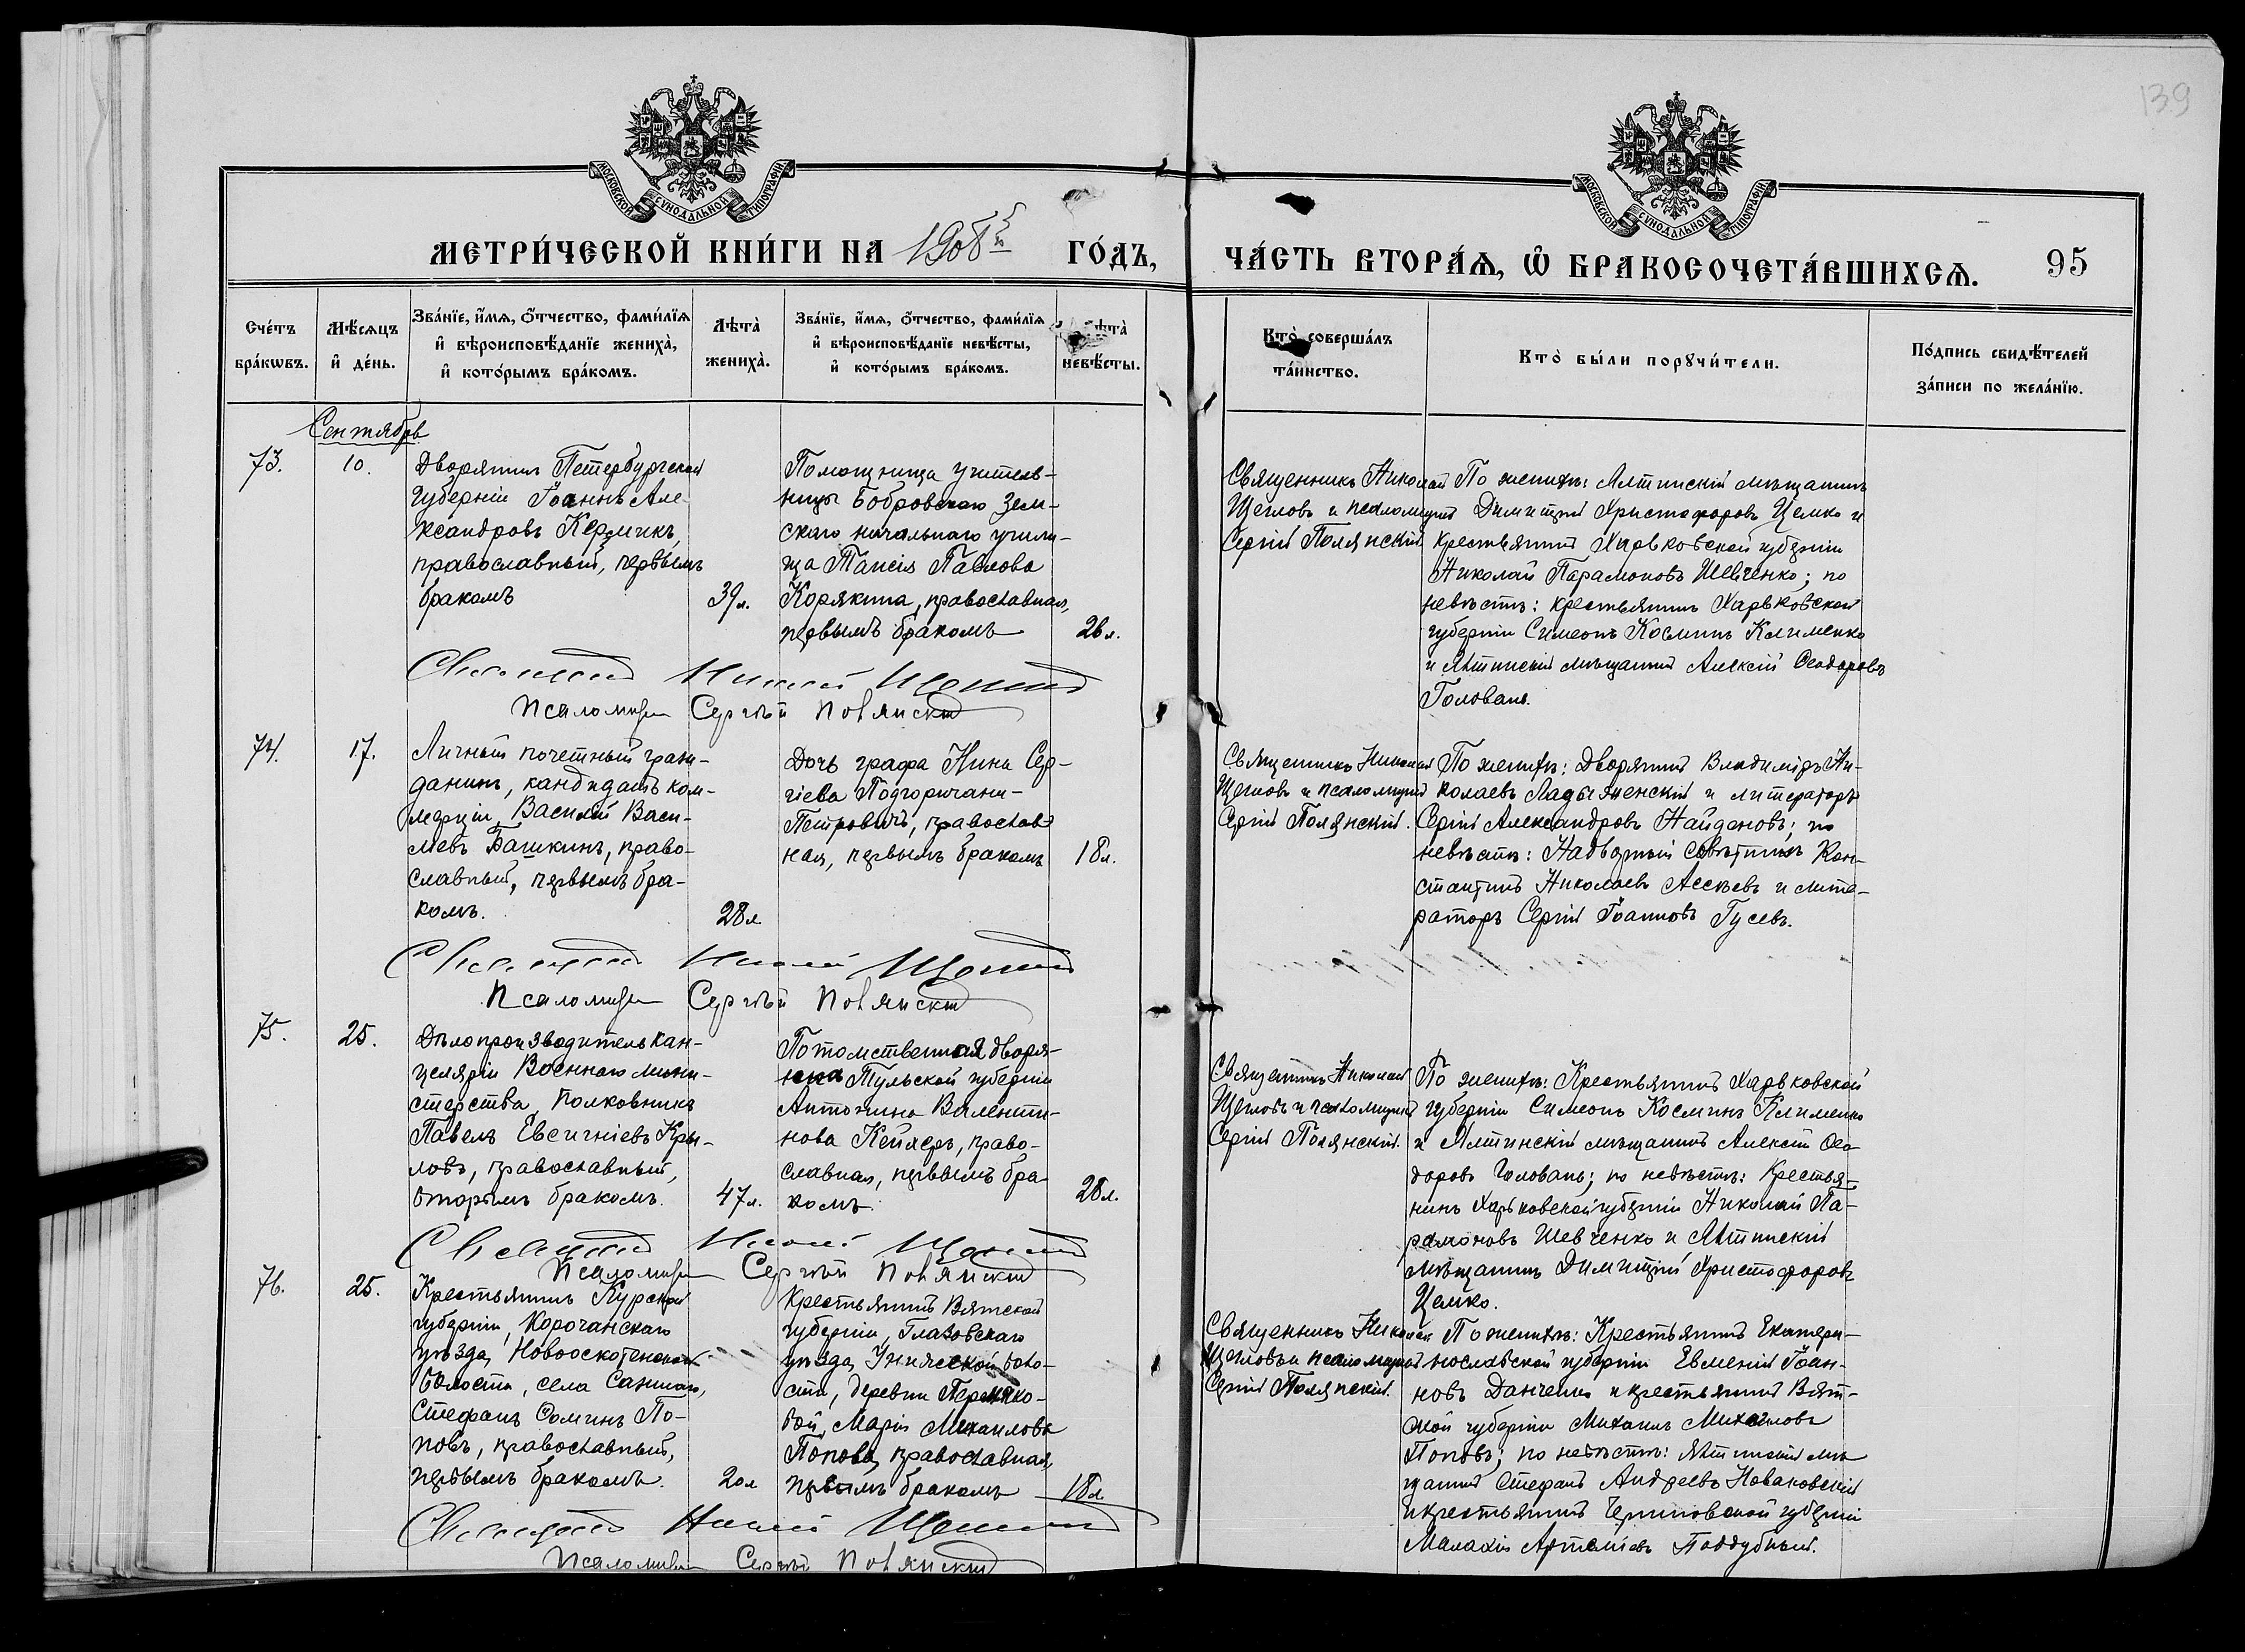 139
МОСКОВСКОЙ СѴНОДАЛЬНОЙ ТИПОГРАФІИ
МОСКОВСКОЙ СѴНОДАЛЬНОЙ ТИПОГРАФІИ
МЕТРИ́ЧЕСКОЙ КНИ́ГИ НА 1908й ГО́ДЪ,
ЧА́СТЬ ВТОРА́Ѧ, Ѡ҆ БРАКОСОЧЕТА́ВШИХСѦ.
95
Сче́тъ бра́кѡвъ.
Мѣ́сѧцъ и҆ де́нь.
Зва́нїе, и҆́мѧ, ѻ҆́тчество, фами́лїѧ
и҆ вѣроисповѣ́данїе жениха̀,
и҆ кото́рымъ бра́комъ.
Лѣта̀ жениха̀.
Зва́нїе, и҆́мѧ, ѻ҆́тчество, фами́лїѧ
и҆ вѣроисповѣ́данїе невѣ́сты,
и҆ кото́рымъ бра́комъ.
ѣта̀ невѣ́сты.
Кто̀ соверша́лъ
та́инство.
Кто̀ бы́ли порꙋчи́тели.
По́дпись свидѣ́телей
за́писи по жела́нїю.
Сентябрь
73.
10.
Дворянинъ Петербургской
губерніи Іоаннъ Але-
ксандровъ Кермикъ,
православный, первымъ
бракомъ
39 л.
Помощница учитель-
ницы Бобровскаго Зем-
скаго начальнаго учили-
ща Таисія Павлова
Корякина, православная,
первымъ бракомъ
26 л.
Священникъ Николай
Щегловъ и псаломщикъ
Сергій Полянскій
По женихѣ: Ялтинскій мѣщанинъ
Димитрій Христофоровъ Цемко и
крестьянинъ Харьковской губерніи
Николай Парамоновъ Шевченко; по
невѣстѣ: крестьянинъ Харьковской
губерніи Симеонъ Косминъ Клименко
и Ялтинскій мѣщанинъ Алексій Ѳеодоровъ
Головань.
Священникъ Николай Щегловъ
Псаломщикъ Сергѣй Полянскій
74.
17.
Личный почетный граж-
данинъ, кандидатъ ком-
мерціи, Василій Васи-
льевъ Башкинъ, право-
славный, первымъ бра-
комъ.
28 л
Дочь графа Нина Сер-
гіева Подгоричани-
Петровичъ, православ-
ная, первымъ бракомъ
18 л.
Священникъ Николай
Щегловъ и псаломщикъ
Сергій Полянскій.
По женихѣ: Дворянинъ Владиміръ Ни-
колаевъ Ладыженскій и литераторъ
Сергій Александровъ Найденовъ; по
невѣстѣ: Надворный совѣтникъ Кон-
стантинъ Николаевъ Ассѣевъ и лите-
раторъ Сергій Іоанновъ Гусевъ.
Священникъ Николай Щегловъ
Псаломщикъ Сергѣй Полянскій
75.
25.
Дѣлопроизводитель кан-
целяріи Военнаго мини-
стерства, полковникъ
Павелъ Евсигніевъ Кры-
ловъ, православный,
вторымъ бракомъ.
47 л.
Потомственная дворян-
ка Тульской губерніи
Антонина Валенти-
нова Кейзеръ, право-
славная, первымъ бра-
комъ.
28 л.
Священникъ Николай
Щегловъ и псаломщикъ
Сергій Полянскій.
По женихѣ: Крестьянинъ Харьковской
губерніи Симеонъ Косминъ Клименко
и Ялтинскій мѣщанинъ Алексій Ѳео-
доровъ Головань; по невѣстѣ: Крестья-
нинъ Харьковской губерніи Николай Па-
рамоновъ Шевченко и Ялтинскій
мѣщанинъ Димитрій Христофоровъ
Цемко.
Священникъ Николай Щегловъ
Псаломщикъ Сергѣй Полянскій
76.
25.
Крестьянинъ Курской
губерніи, Корочанскаго
уѣзда, Новооскоченской
волости, села
Стефанъ Ѳоминъ По-
повъ, православный,
первымъ бракомъ.
20 л
Крестьянинъ Вятской
губерніи, Глазовскаго
уѣзда, Унинской воло-
сти, деревни
Марія Михаилова
Попова, православная,
первымъ бракомъ
18 л.
Священникъ Николай
Щегловъ и псаломщикъ
Сергій Полянскій.
По женихѣ: Крестьянинъ Екатери-
нославской губерніи Евменій Іоан-
новъ Данченко и крестьянинъ Вят-
ской губерніи Михаилъ Михаиловъ
Поповъ; по невѣстѣ: Ялтинскій мѣ-
щанинъ Стефанъ Андреевъ Новаковскій
и крестьянинъ Черниговской губерніи
Малахія Артеміевъ Поддубный.
Священникъ Николай Щегловъ
Псаломщикъ Сергѣй Полянскій